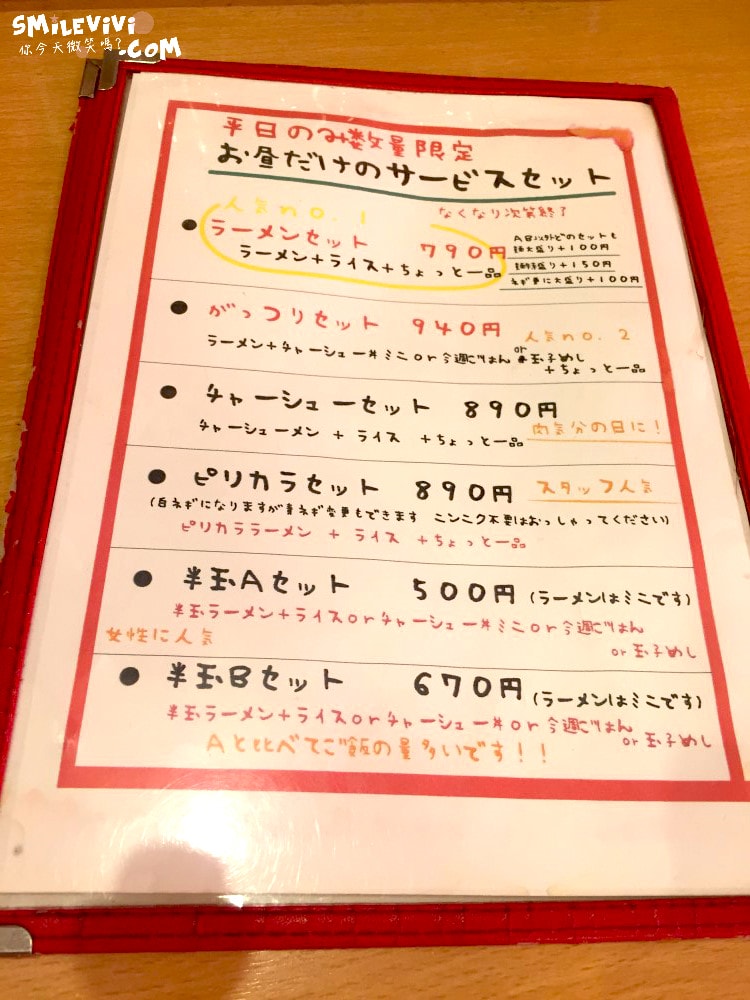 SMiLEViVi
你今天微笑嗎?
.COM
平日のみ数量限定
お昼だけのサービスセット
人気no.1
なくなり次第終了
ラーメンセット 790円
ラーメン+ライス+ちょっと一品
A B以外どのセットも
麺大盛り+100円
麺特盛り+150円
ネギ更に大盛り+100円
がっつりセット 940円
人気no.2
ラーメン+チャーシュー丼ミニor今週ごはん or 玉子めし
+ちょっと一品
チャーシューセット 890円
チャーシューメン + ライス +ちょっと一品
肉気分の日に!
ピリカラセット 890円
スタッフ人気
(白ネギになりますが青ネギ変更もできます ニンニク不要はおっしゃってください)
ピリカララーメン + ライス +ちょっと一品
半玉Aセット 500円 (ラーメンはミニです)
半玉ラーメン+ライスorチャーシュー丼ミニor今週ごはん
or玉子めし
女性に人気
半玉Bセット 670円 (ラーメンはミニです)
半玉ラーメン+ライスorチャーシュー丼or今週ごはん
or玉子めし
Aと比べてご飯の量多いです!!